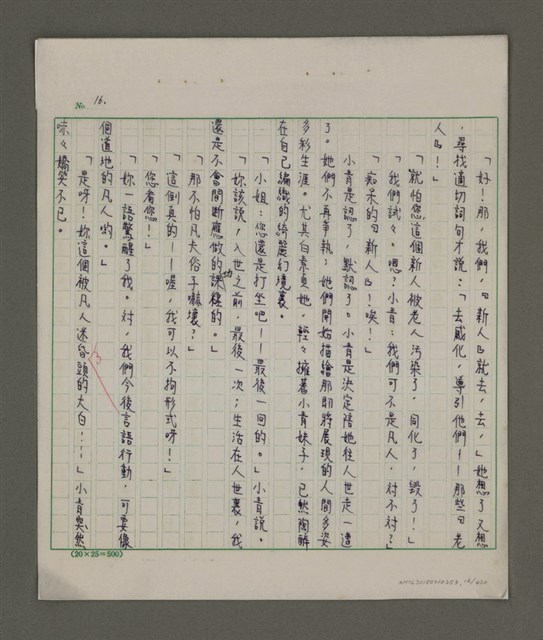 No. 16.
「好！那，我們，『新人』就去，去，」她想了又想
，尋找適切詞句才說：「去感化，導引他們——那些『老
人』！」
「就怕您這個新人被老人污染了，同化了，毀了！」
「我們試々。嗯？小青：我們可不是凡人，對不對？」
「痴呆的『新人』！唉！」
小青是認了，默認了。小青是決定陪她往人世走一遭
了。她們不再爭執；她們開始描繪那即將展現的人間多姿
多彩生涯。尤其白素貞她，輕々擁著小青妹子，已然陶醉
在自己編織的綺麗幻境裏。
「小姐：您還是打坐吧——最後一回的。」小青說。
「妳該說，入世之前，最後一次；生活在人世裏，我
還是不會間斷應做的功課的。」
「那不怕凡夫俗子嚇壞？」
「這倒真的——喔，我可以不拘形式呀！」
「您看您！」
「妳一語驚醒了我。對，我們今後言語行動，可要像
個道地的凡人喲。」
「是呀！妳這個被凡人迷昏了頭的大白！！」小青突然
咳々嬌笑不已。
(20×25=500)